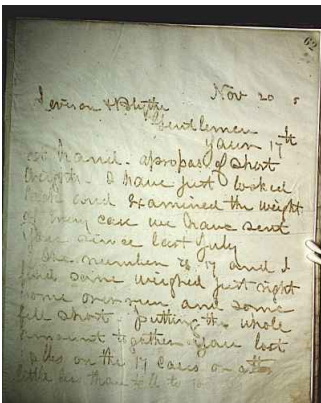 62
Nov 20
Levison & Blythe
Gentlemen
Yours 17th
at hand. apropos of short
weight. I have just looked
back and examined the weight
of every case we have sent
you since last July
The number is 17 and I
find some weighed just right
some overrun and some
fell short. putting the whole
amount together you lost
on the 17 cases
little